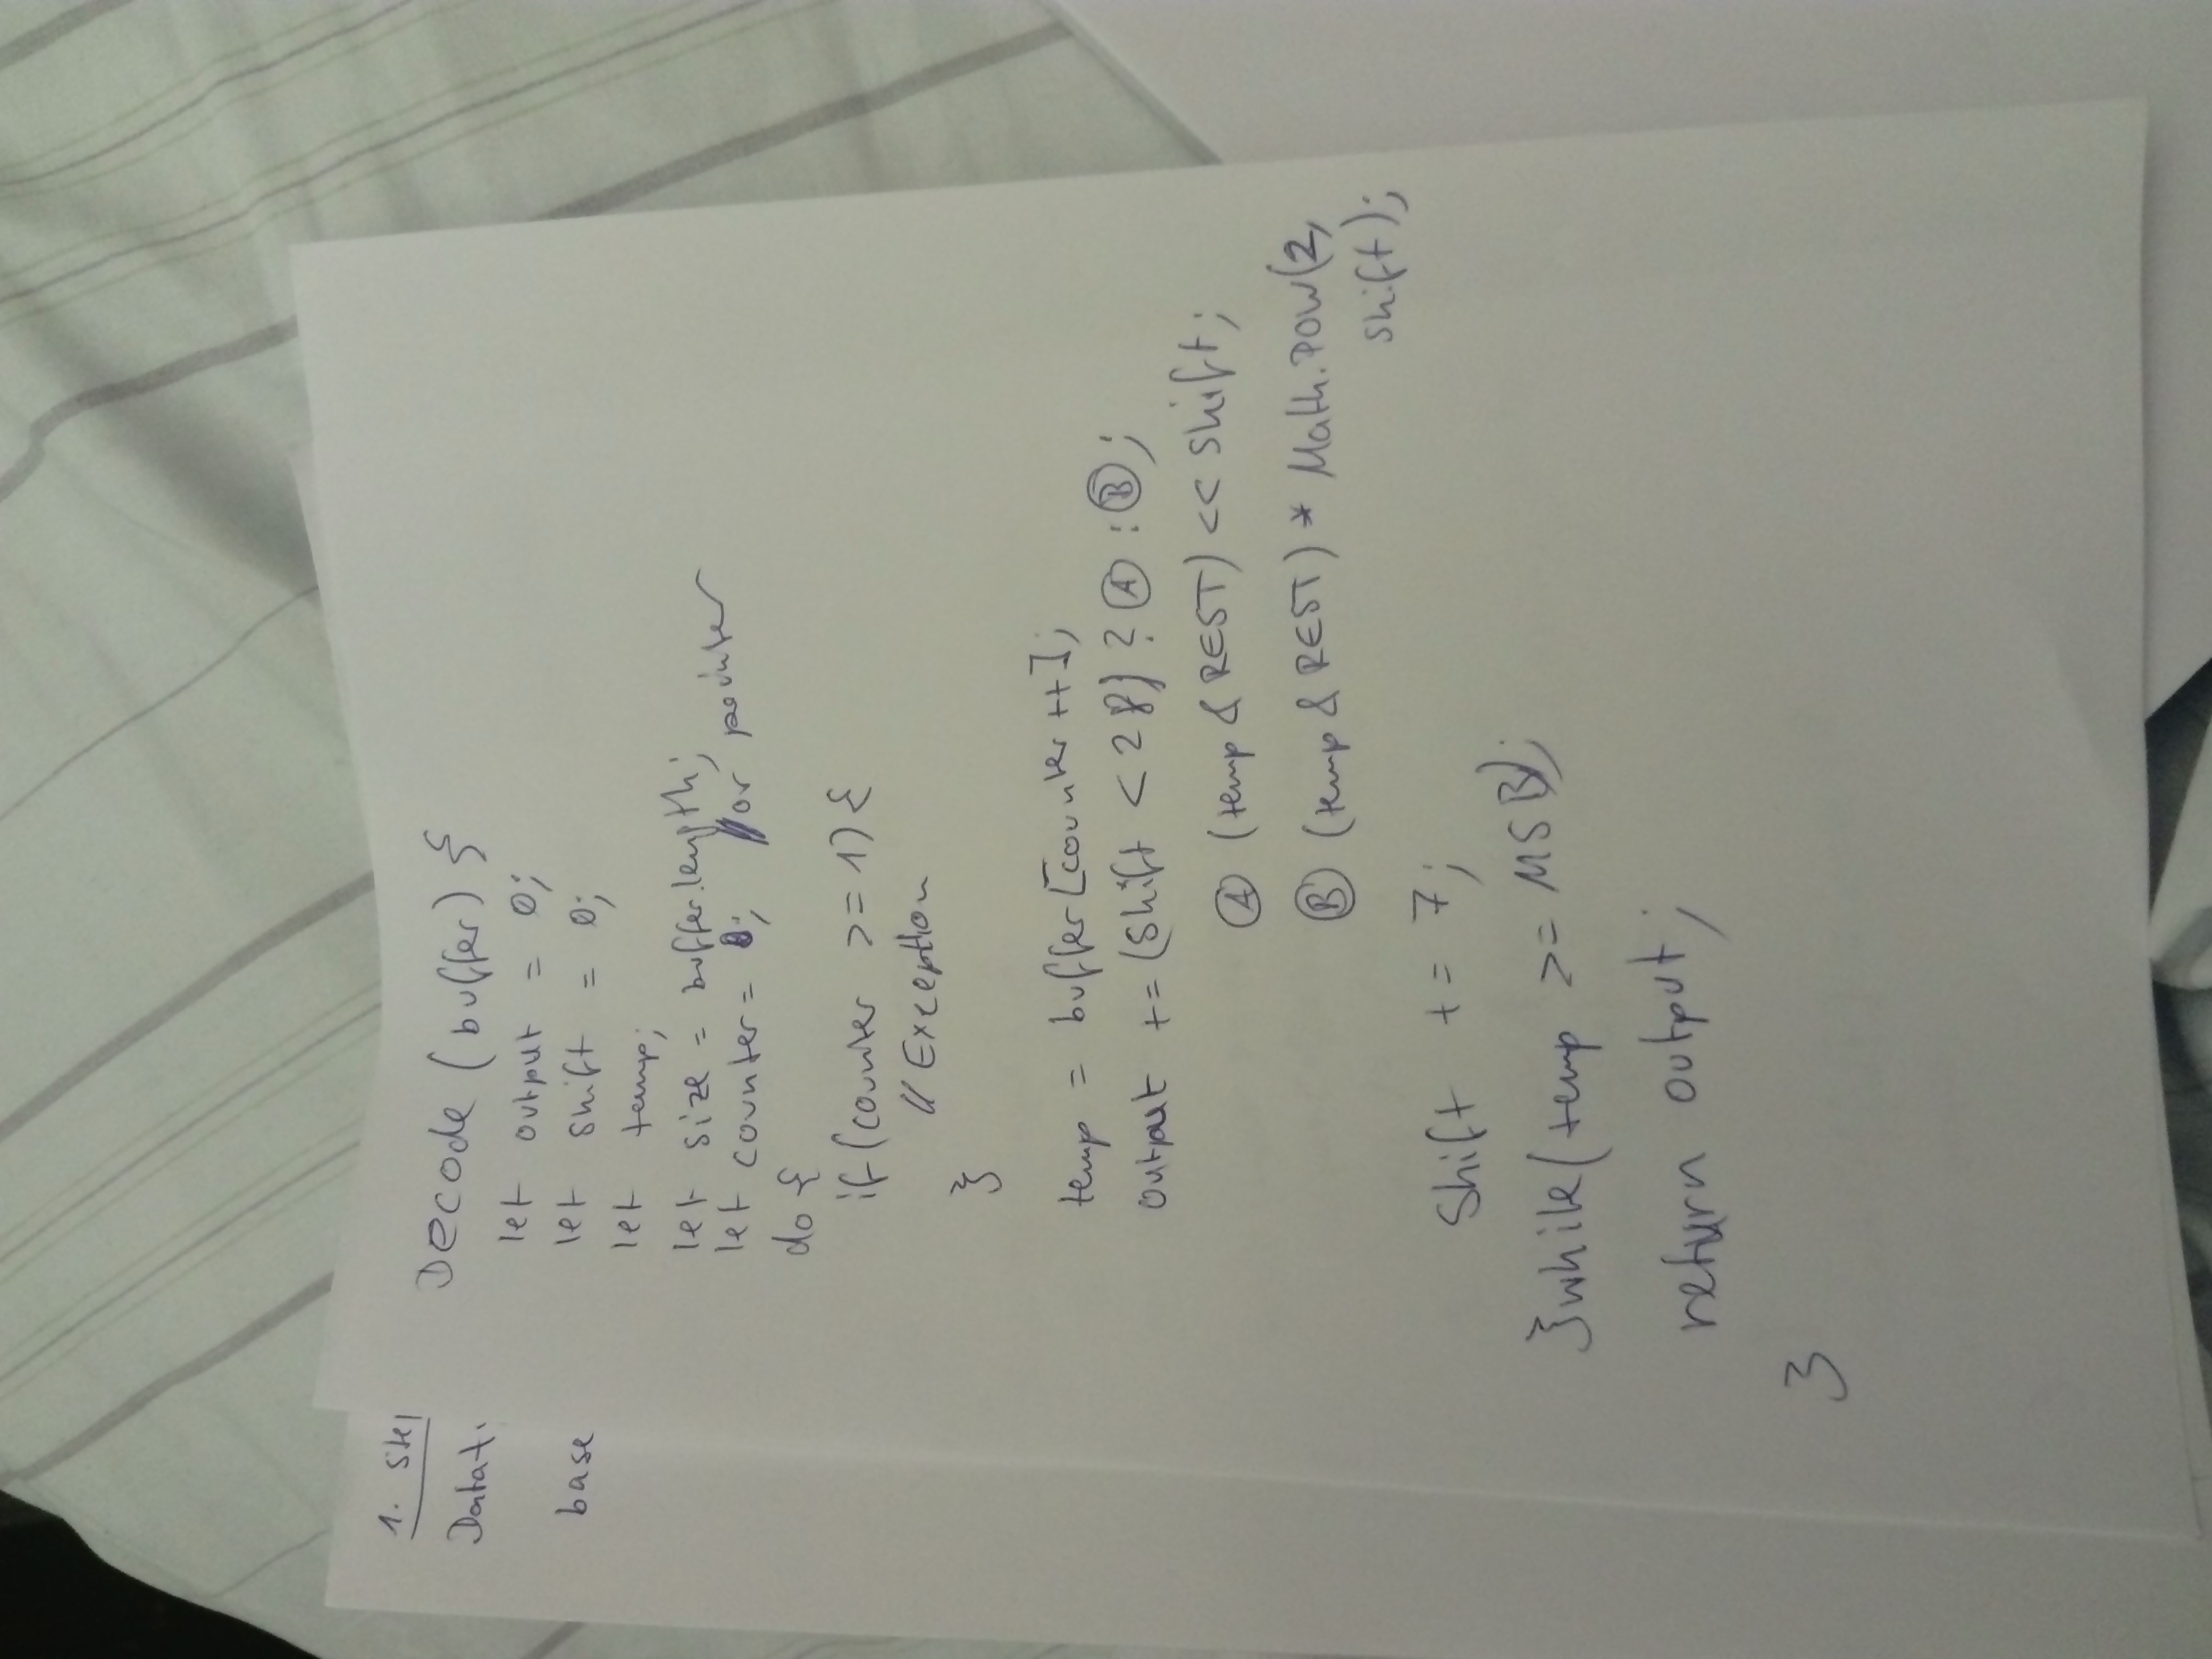 1. Ste
Datat
base
Decode (buffer) {
let output = 0;
let shift = 0;
let temp;
let size = buffer.length;
let counter = 0; // or pointer
do {
if (counter >= 1) {
// Exception
}
temp = buffer[counter++];
output += (shift < 28) ? Ⓐ : Ⓑ;
Ⓐ (temp & REST) << shift;
Ⓑ (temp & REST) * Math.pow(2,
shift);
shift += 7;
} while (temp >= MSB);
return output;
}